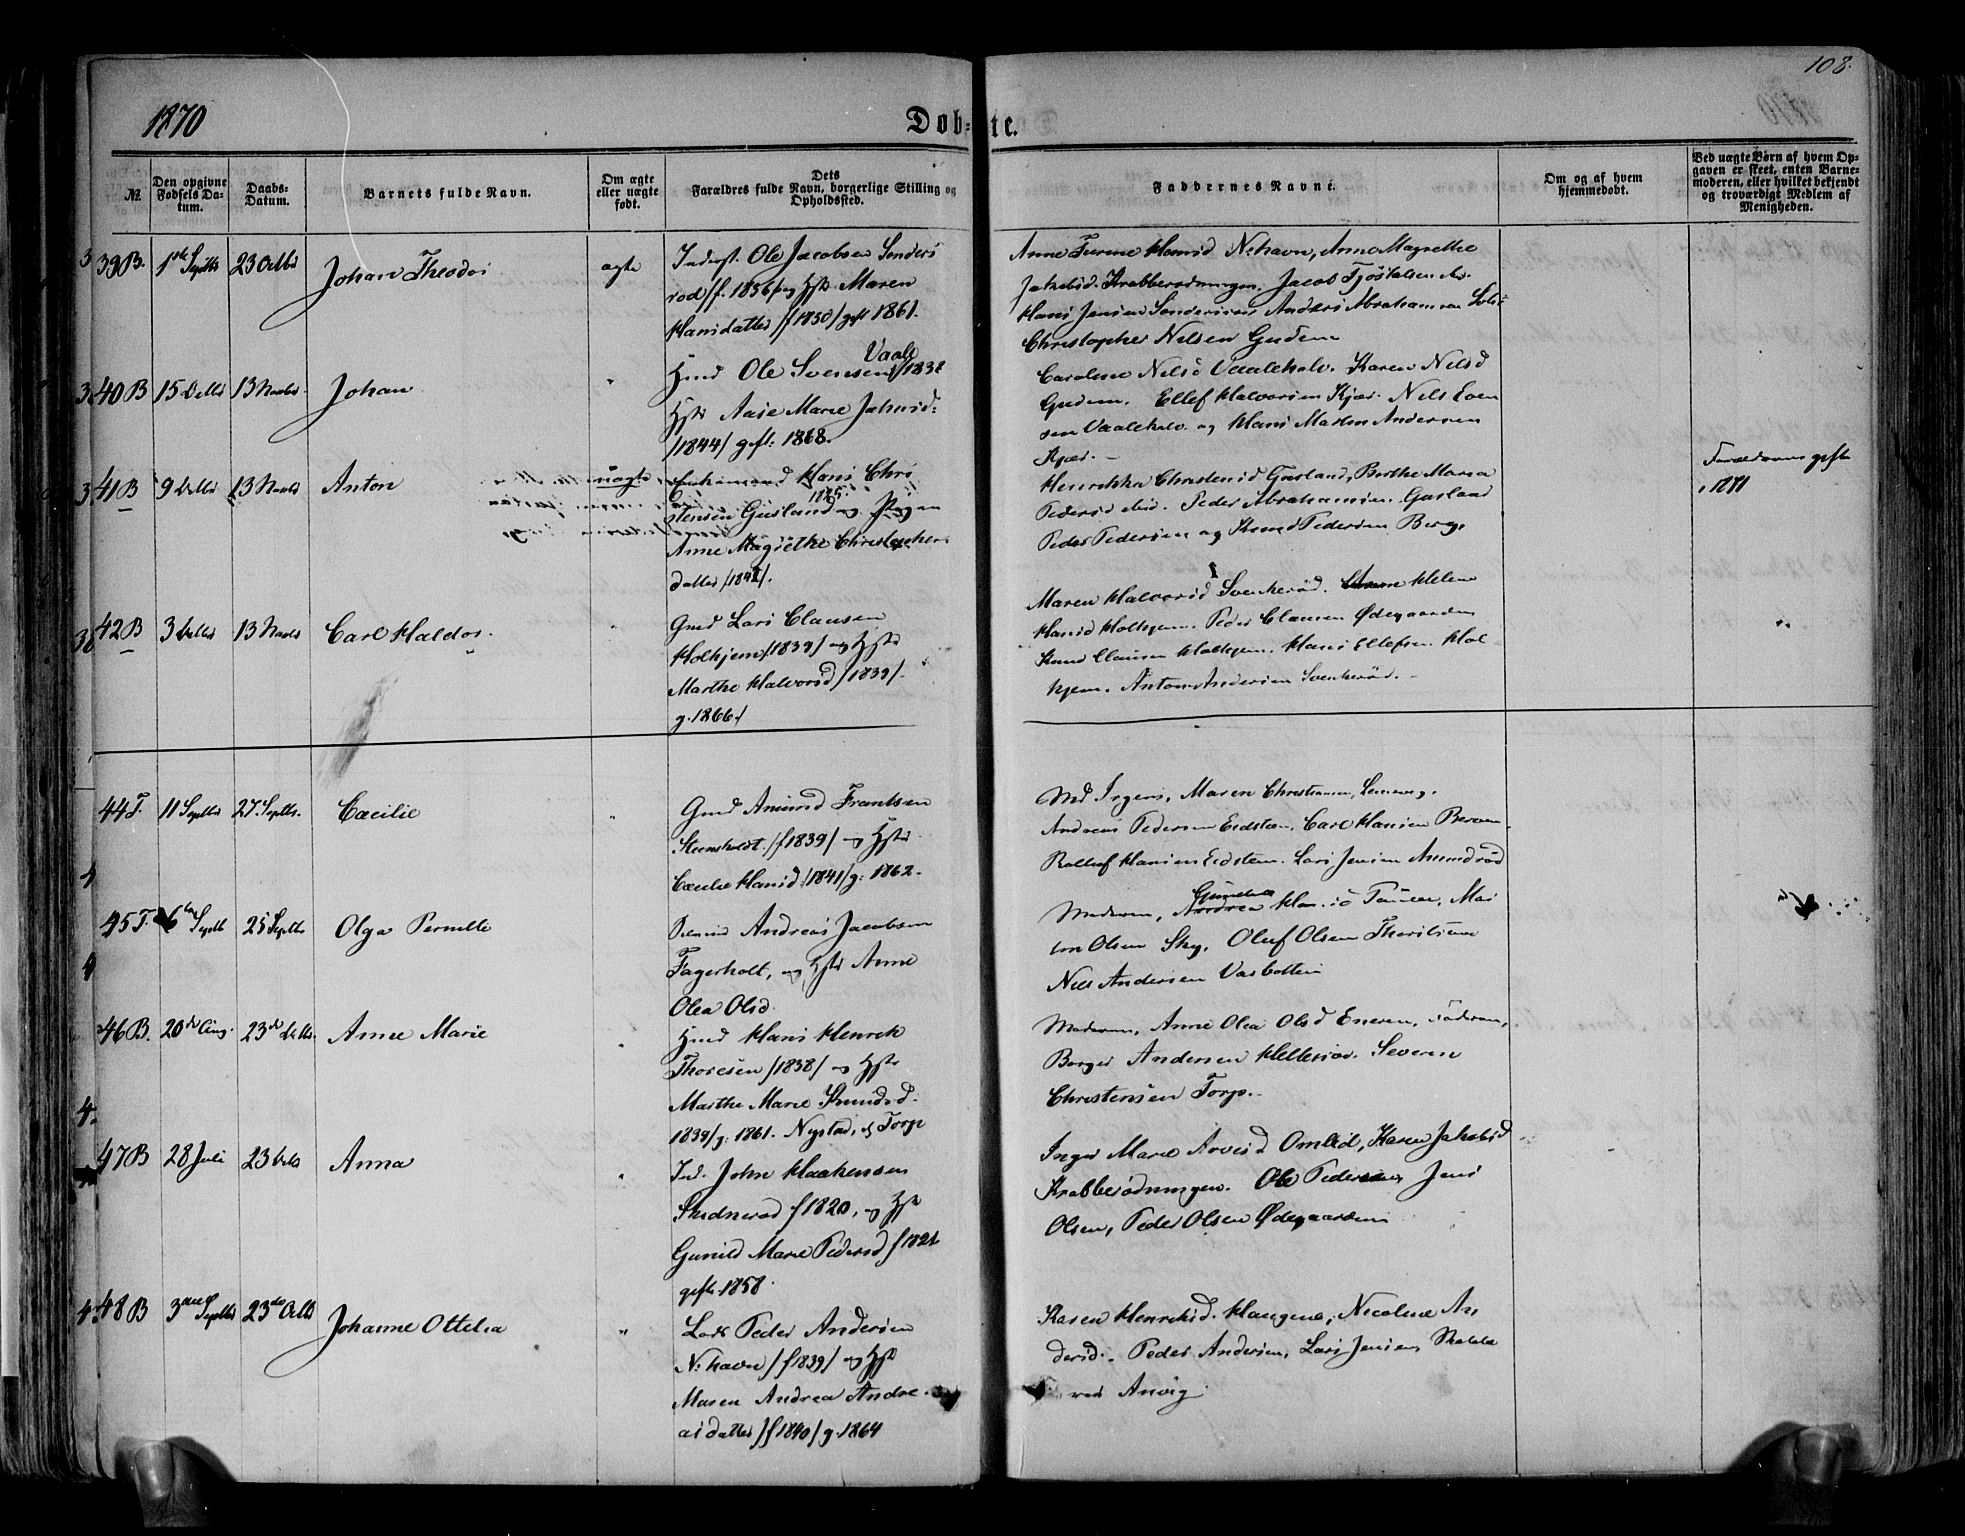 108.
1870
Døb-te.
No.
Den opgivne Fødsels Datum.
Daabs-Datum.
Barnets fulde Navn.
Om ægte eller uægte født.
Dets Forældres fulde Navn, borgerlige Stilling og Opholdssted.
Faddernes Navne.
Om og af hvem hjemmedøbt.
Ved uægte Børn af hvem Opgaven er skeet, enten Barnemoderen, eller hvilket bekjendt og troværdigt Medlem af Menigheden.
39B. 1ste Septbr 23 Octbr Johan Theodor ægte Inderst. Ole Jacobsen Sønders
rød /f. 1836/ og Hstr Maren
Hansdatter /f 1830/ gift 1861.
Anne Hansd N:havn, Anne Magrethe
Jakobsd. Krabberødningen. Jacob Tjøstelsen
Hans Jensen Anders Abrahamsen
Christopher Nilsen Gudem
40B 15 Octbr 13 Novbr Johan " Hmd Ole Svensen Vaale /1838
Hstr Aase Marie Johnsd:
/1844/ gift: 1868.
Caroline Nilsd Vaaleholv. Karen Nilsd
Gudem. Ellef Halvorsen Kjær. Nils Even
sen Vaaleholv. og Hans Martin Andersen
Kjær. —
41B 9 Octbr 13 Novbr Anton uægte Enkemand Hans Chri
stensen Gusland 1825 og Pigen
Anne Magrethe Christopher
datter /1842/.
Henrikka Christensd Gusland, Berthe Maria
Pedersd ibid. Peder Abrahamsen Gusland
Peder Pedersen og Knud Pedersen Berg.
Forældrene gifte
1871
42B 3 Octbr 13 Novbr Carl Haldor. Gmd Lars Clausen
Holhjem /1839/ og Hstr
Marthe Halvorsd /1839/.
g. 1866./
Maren Halvorsd Svenkerød. Helene
Hansd Holhjem. Peder Clausen Ødegaarden
Knud Clausen Holhjem. Hans Ellefsen Hol-
hjem. Anton Andersen Svenkerød. —
44T. 11 Septbr 27. Septbr. Cæcilie " Gmd Amund Frantsen
Steensholdt. /f 1839/ og Hstr
Cæcilie Hansd. /1841/ g: 1862.
Md Irgens, Maren Christiansen,
Andreas Pedersen Eidsten, Carl Hansen
Hansen Eidsten. Lars Jensen Amundrød
45T. 6te Septb 25 Septbr Olga Pernille " Andreas Jacobsen
Fagerholt, og Hstr Anne
Olea Olsd.
Moderen,
Olsen Sky, Oluf Olsen
Nils Andersen
46B. 20de Aug. 23de Octbr. Anne Marie " Hmd Hans Henrik
Thoresen /1838/ og Hstr
Marthe Marie Knudsd.
1839/ g: 1861. Nystad, u/ Torp
Moderen, Anne Olea Olsd Eneren, Faderen,
Borger Andersen Hellerød. Severin
Christensen Torp. —
47B 28 Juli 23 Octb Anna " Ind. John Haakensen
Skidnerød f 1820, og Hstr
Gunild Marie Pedersd f 1821
gift. 1858.
Inger Marie Arvesd Omlid, Karen Jakobsd
Krabberødningen. Ole Pedersen, Jens
Olsen, Peder Olsen Ødegaarden
48B 3die Septbr 23de Octb Johanne Ottelia " Lods Peder Andersen
N:havn /f 1839/ og Hstr
Maren Andrea Andre
asdatter /f 1840/ g. 1864
Karen Henriksd. Haugene, Nicoline An
dersd. Peder Andersen, Lars Jensen
ved Anvig